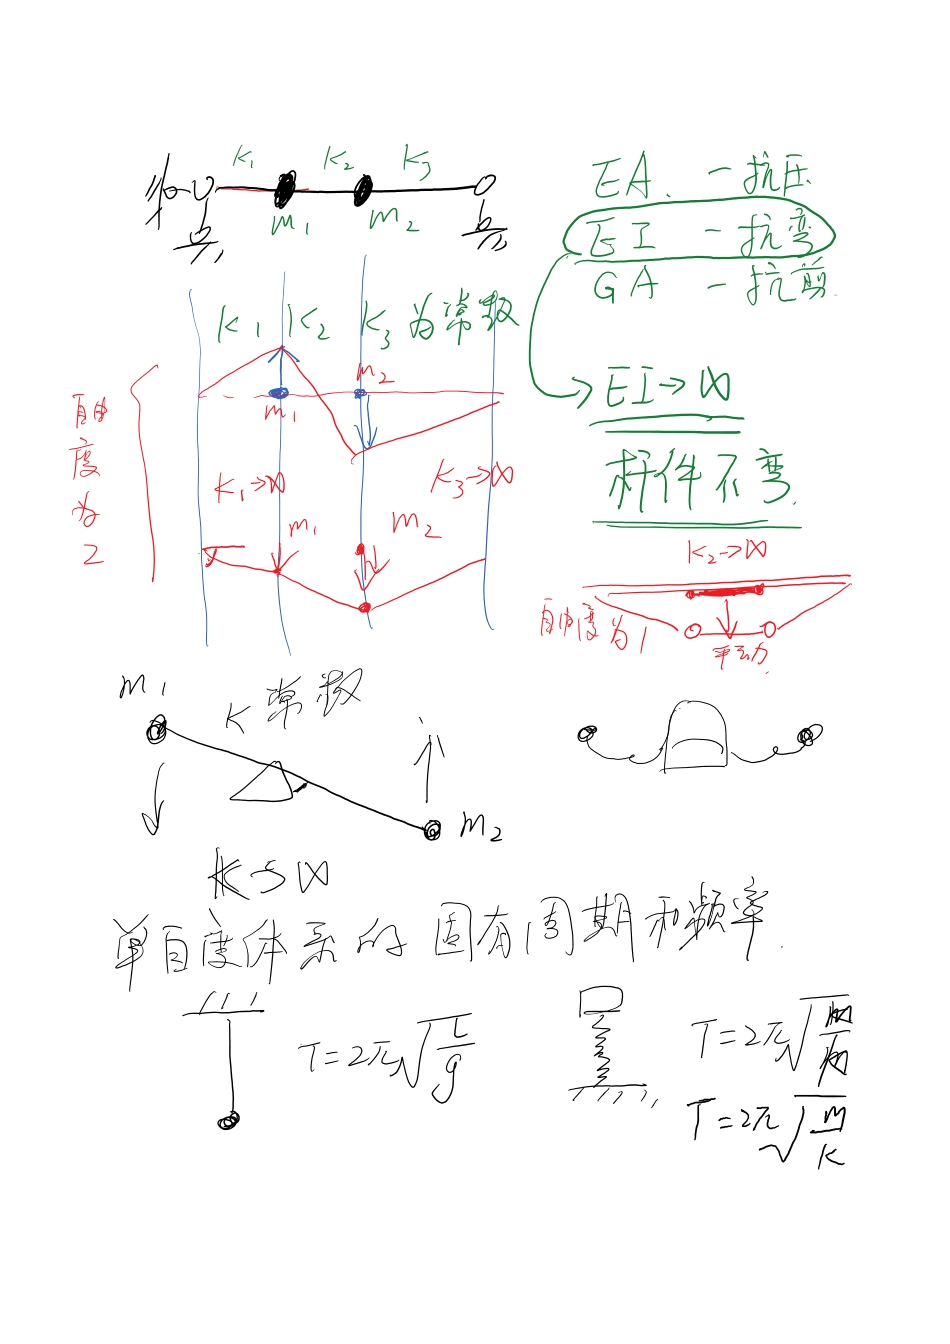 K₁ K₂ K₃
m₁ m₂
EA. — 抗压
EI — 抗弯
GA — 抗剪
K₁ K₂ K₃为常数
m₁ m₂
EI→∞
杆件不弯
自由度为2
K₁→∞ K₃→∞
m₁ m₂
K₂→∞
自由度为1
平动
m₁ K常数
m₂
K→∞
单自度体系的固有周期和频率.
T=2π√(L/g)
T=2π√(m/K)